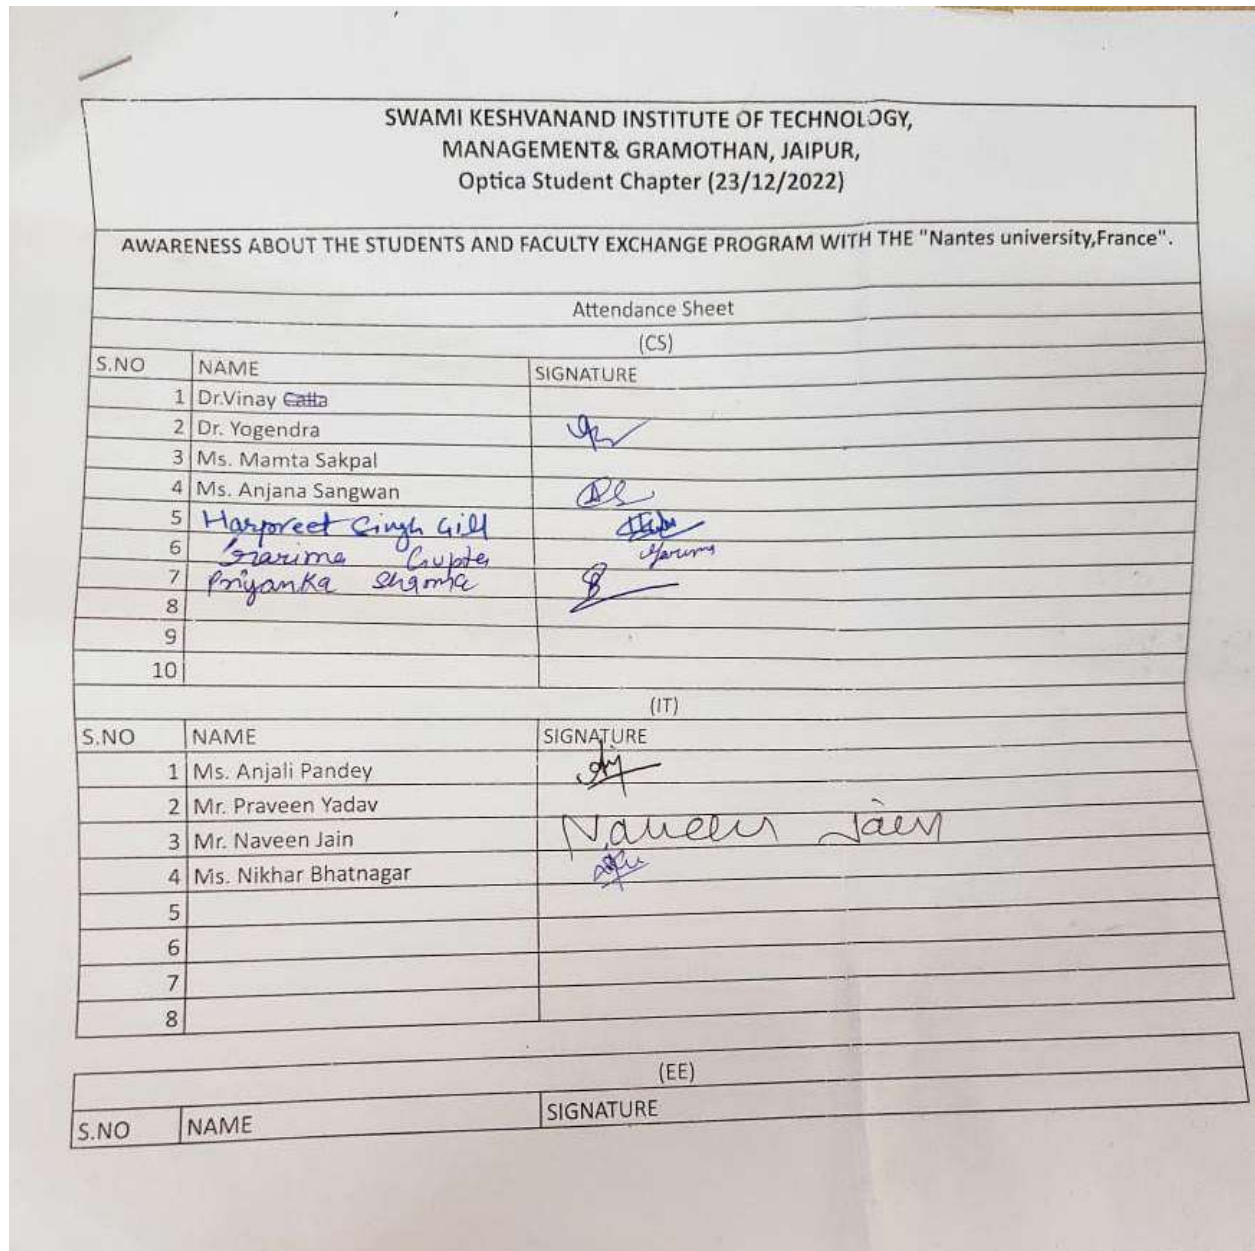 SWAMI KESHVANAND INSTITUTE OF TECHNOLOGY,
MANAGEMENT& GRAMOTHAN, JAIPUR,
Optica Student Chapter (23/12/2022)
AWARENESS ABOUT THE STUDENTS AND FACULTY EXCHANGE PROGRAM WITH THE "Nantes university,France".
Attendance Sheet
(CS)
S.NO NAME SIGNATURE
1 Dr.Vinay
2 Dr. Yogendra
3 Ms. Mamta Sakpal
4 Ms. Anjana Sangwan
5 Harpreet Singh Gill
6 Garima Gupta Garima
7 Priyanka Sharma
8
9
10
(IT)
S.NO NAME SIGNATURE
1 Ms. Anjali Pandey
2 Mr. Praveen Yadav
3 Mr. Naveen Jain Naveen Jain
4 Ms. Nikhar Bhatnagar
5
6
7
8
(EE)
S.NO NAME SIGNATURE